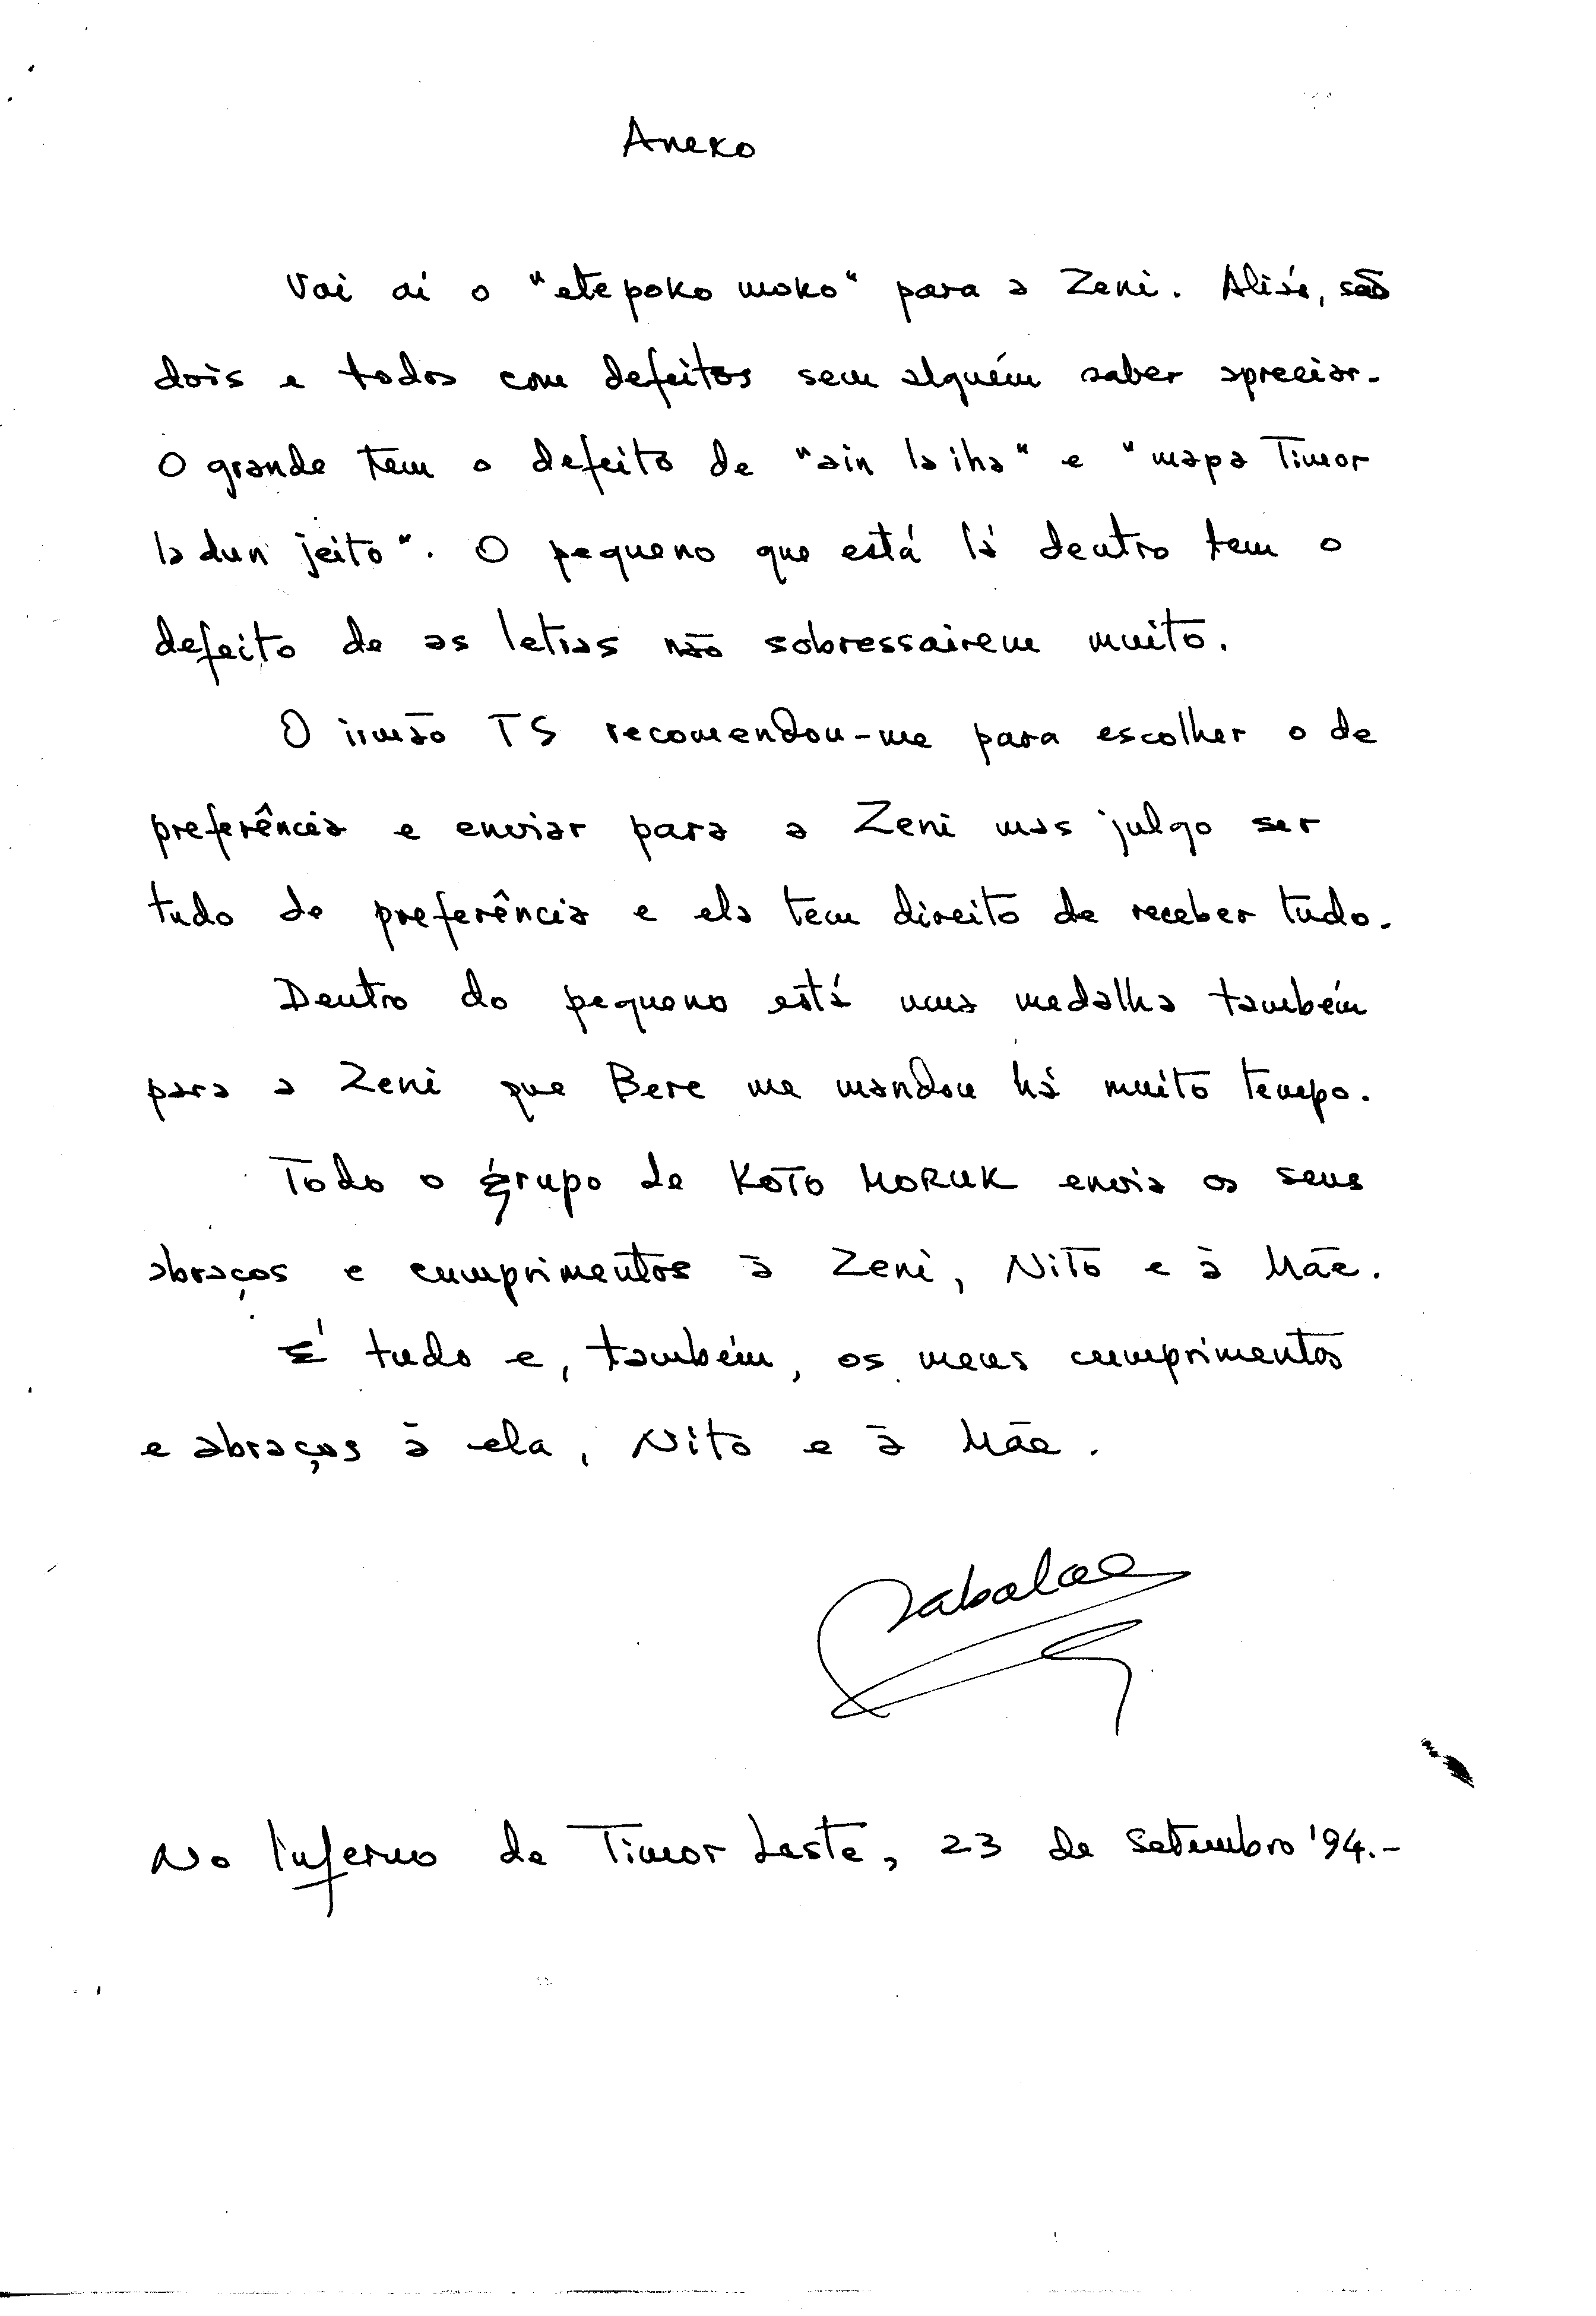 Anexo
Vai aí o "ete poko moko" para a Zeni. Aliás, são
dois e todos com defeitos sem alguém saber apreciar.
O grande tem o defeito de "ain la iha" e "mapa Timor
la dun jeito". O pequeno que está lá dentro tem o
defeito de as letras não sobressairem muito.
O irmão TS recomendou-me para escolher o de
preferência e enviar para a Zeni mas julgo ser
tudo de preferência e ela tem direito de receber tudo.
Dentro do pequeno está uma medalha também
para a Zeni que Bere me mandou há muito tempo.
Todo o grupo de KOTO MORUK envia os seus
abraços e cumprimentos à Zeni, Nito e à Mãe.
É tudo e, também, os meus cumprimentos
e abraços à ela, Nito e à Mãe.
Sabalae
No Inferno de Timor Leste, 23 de Setembro '94.-